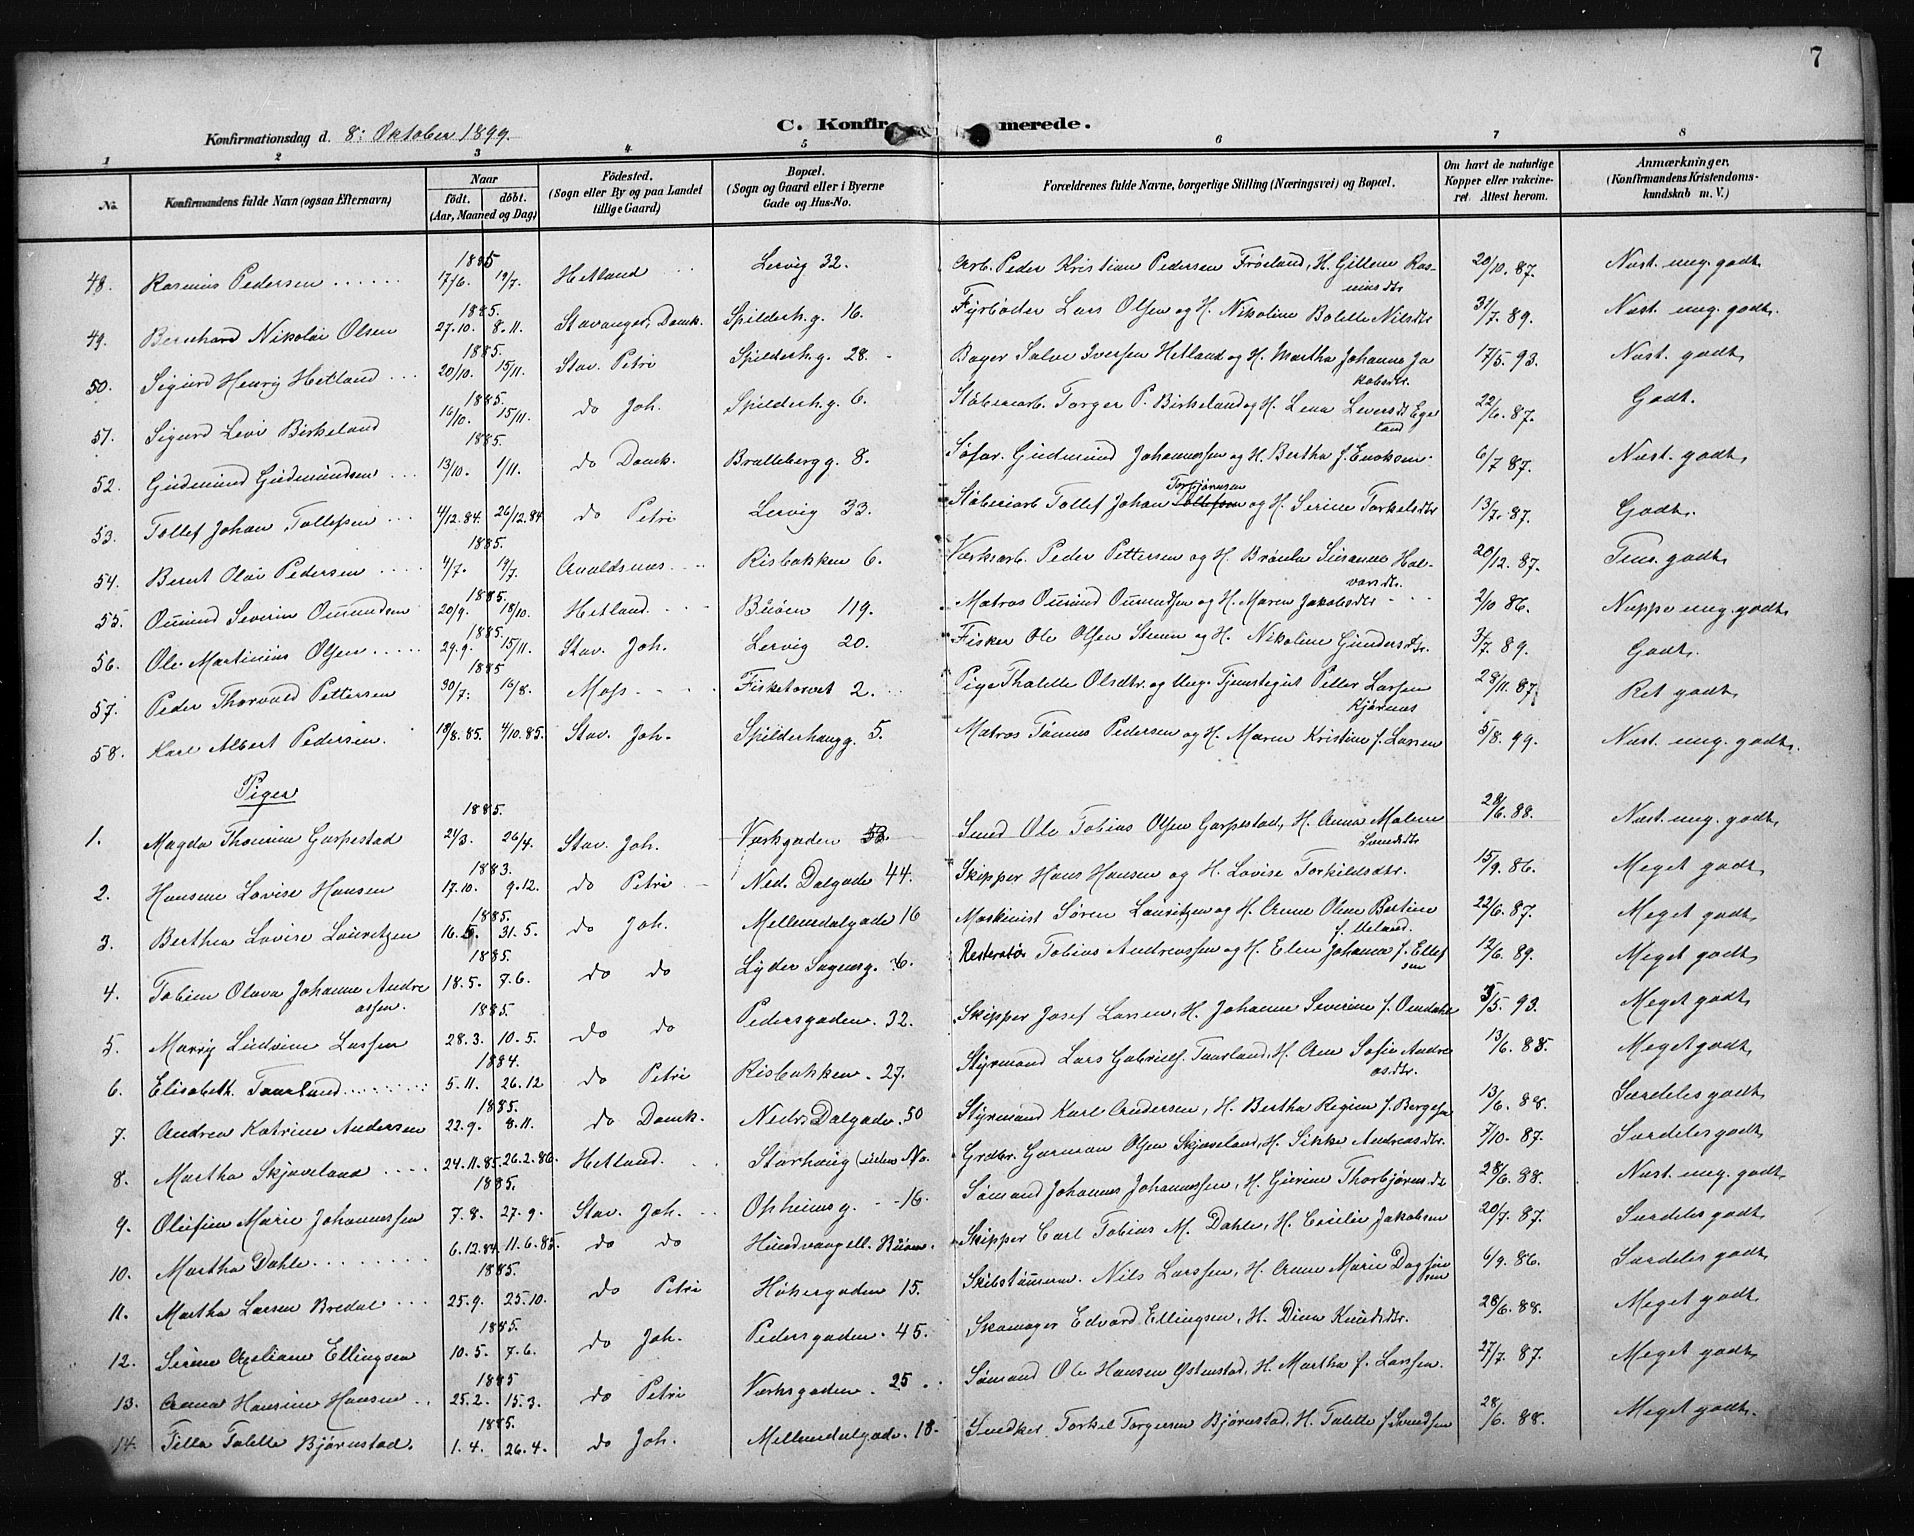 7
C. Konfirmerede.
Konfirmationsdag d. 8: Oktober 1899.
1 2 3 4 5 6 7 8
No. Konfirmandens fulde Navn (ogsaa Efternavn) Naar født. døbt. (Aar, Maaned og Dag) Födested. (Sogn eller By og paa Landet tillige Gaard) Bopæl. (Sogn og Gaard eller i Byerne Gade og Hus-No. Forældrenes fulde Navne, borgerlige Stilling (Næringsvei) og Bopæl. Om havt de naturlige Kopper eller vakcineret. Attest herom. Anmærkninger, (Konfirmandens Kristendomskundskab m. V.)
48. Rasmus Pedersen 1885 17/6. 19/7. Hetland Lervig 32. Arb. Peder Kristian Pedersen Frøiland, H. Gillem Rasmusdtr 20/10. 87. Næst. mg. godt.
49. Bernhard Nikolai Olsen 1885. 27.10. 8.11. Stavanger, Domk. Spilderh.g. 16. Fyrbøder Lars Olsen og H. Nikoline Bolette Nilsdtr 31/7. 89. Næst. mg. godt.
50. Sigurd Henrij Hetland 1885. 20/10. 15/11. Stav. Petri Spilderh.g. 28. Bager Salve Iversen Hetland og H. Martha Johanna Jakobsdtr. 17/5. 93. Næst. godt.
51. Sigurd Levi Birkeland 1885. 16/10. 15/11. do Joh. Spilderh.g. 6. Støberiarb. Torger P. Birkeland og H. Lena Leversdt Egeland 22/6. 87. Godt.
52. Gudmund Gudmundsen 1885. 13/10. 1/11. do Domk. Brattebergg. 8. Søfar. Gudmund Johannessen og H. Bertha f. Enoksen. 6/7 87. Næst. godt.
53. Tollef Johan Tollefsen 4/12.84. 26/12.84 do Petri Lervig 33. Støberiarb Tollef Johan Tollefsen Torbjørnsen og H. Serine Torkelsdtr 13/7. 87. Godt.
54. Bernt Olai Pedersen 1885. 4/7. 19/7. Avaldsnes Risbakken 6. Værksarb. Peder Pettersen og H. Brønla Susanne Halvorsdtr. 20/12. 87. Tem. godt.
55. Oumund Severin Oumundsen 1885. 20/9. 18/10. Hetland. Buøen 119. Matros Oumund Oumundsen og H. Maren Jakobsdtr 2/10 86. Neppe mg. godt.
56. Ole Martinius Olsen 1885. 29.9. 15/11. Stav. Joh. Lervig 20. Fisker Ole Olsen Steen og H. Nikoline Gundersdtr. 31/7. 89. Godt.
57. Peder Thorvald Pettersen 1885 30/7. 16/8. Moss Fisketorvet 2. Pige Thalette Olsdtr. og Ung. Tjenestegut Petter Larsen Kjørnes 28/11. 87. Ret godt.
58. Karl Albert Pedersen. 19/8.85. 4/10.85. Stav. Joh. Spilderhaugg. 5. Matros Tønnes Pedersen og H. Maren Kristine f. Larsen 5/8. 99. Næst. mg. godt.
Piger
1. Magda Thomine Garpestad 1885. 24/3. 26/4. Stav. Joh. Værksgaden 53 Smed Ole Tobias Olsen Garpestad, H. Anna Malene Svendsdtr 28/6. 88. Næst. mg. godt.
2. Hansine Lovise Hansen 1883. 17.10. 9.12. do Petri Ned. Dalgade 44. Skipper Hans Hansen og H. Lovise Torkildsdtr. 15/9. 86. Meget godt.
3. Berthea Lovise Lauritzen 1885. 16.5. 31.5. do Joh. Mellemdalgade 16 Maskinist Søren Lauritzen og H. Anne Oline Bertine f. Ueland. 22/6. 87. Meget godt.
4. Tobine Olava Johanne Andreassen. 1885. 18.5. 7.6. do do Lyder Sagensg. 6. Restoratør Tobias Andreassen og H. Elen Johanna f. Ellefsen 12/6. 89. Meget godt.
5. Marrij Ludvine Larsen 1885. 28.3. 10.5. do do Pedersgaden. 32. Skipper Josef Larsen, H. Johanne Severine f. Omdahl 3/5. 93. Meget godt.
6. Elisabeth Taarland 1884. 5.11. 26.12 do Petri Risbakken. 27. Styrmand Lars Gabrielf. Taarland, H. Ane Sofie Andreasdtr. 13/6. 85. Meget godt.
7. Andrea Katrine Andersen 1885. 22.9. 8.11. do Domk. Nedre Dalgade. 50 Styrmand Karl Andersen, H. Bertha Regine f. Bergesen 13/6. 88. Særdeles godt.
8. Martha Skjæveland 24.11.85. 26.2.86. Hetland. Storhaug (uden No. Grdbr. Garman Olsen Skjæveland, H. Sikke Andreasdtr. 7/10. 87. Særdeles godt.
9. Olefine Marie Johannessen 1885. 7.8. 27.9. Stav. Joh. Opheimsg. 16. Sømand Johannes Johannessen, H. Gurine Thorbjørnsdtr 28/6. 88. Næst mg. godt.
10. Martha Dahle 6.12.84. 11.6.85. do do Hundvaagell. Buøen. Skipper Carl Tobias M. Dahle, H. Cecilie Jakobsen 20/7. 87. Særdeles godt.
11. Martha Larsen Bredal 1885. 25.9. 25.10. do Petri Høkergaden 15. Skibstømrm. Nils Larssen, H. Anne Marie Dagfinsen 6/9. 86. Særdeles godt.
12. Serine Axeliane Ellingsen 1885. 10.5. 7.6. do Joh. Pedersgaden. 45. Skomager Edvard Ellingsen, H. Dina Knudsdtr. 28/6. 88. Meget godt.
13. Anna Hansine Hansen 1885 25.2. 15.3. do Petri Værksgaden. 25. Sømand Ole Hansen Østenstad, H. Martha f. Larssen. 27/7. 87. Meget godt.
14. Tilla Talette Bjørnstad. 1885. 1.4. 26.4. do Joh. Mellemdalgade. 18. Snedker Torkel Torgersen Bjørnstad, H. Talette f. Svendsen 28/6. 88. Meget godt.